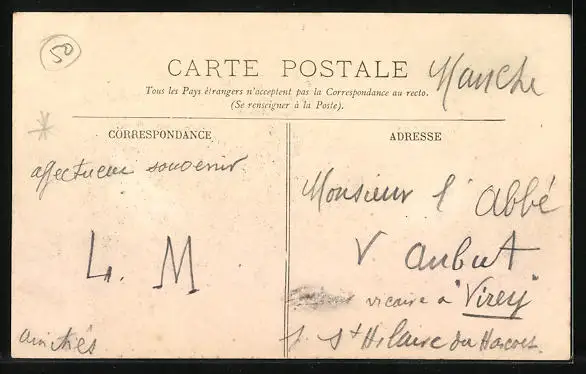 50
CARTE POSTALE
Manche
Tous les Pays étrangers n'acceptent pas la Correspondance au recto.
(Se renseigner à la Poste).
CORRESPONDANCE
affectueux souvenir
L. M
amitiés
ADRESSE
Monsieur l'Abbé
V. Aubut
vicaire à "Virey"
p. St Hilaire du Harcoet